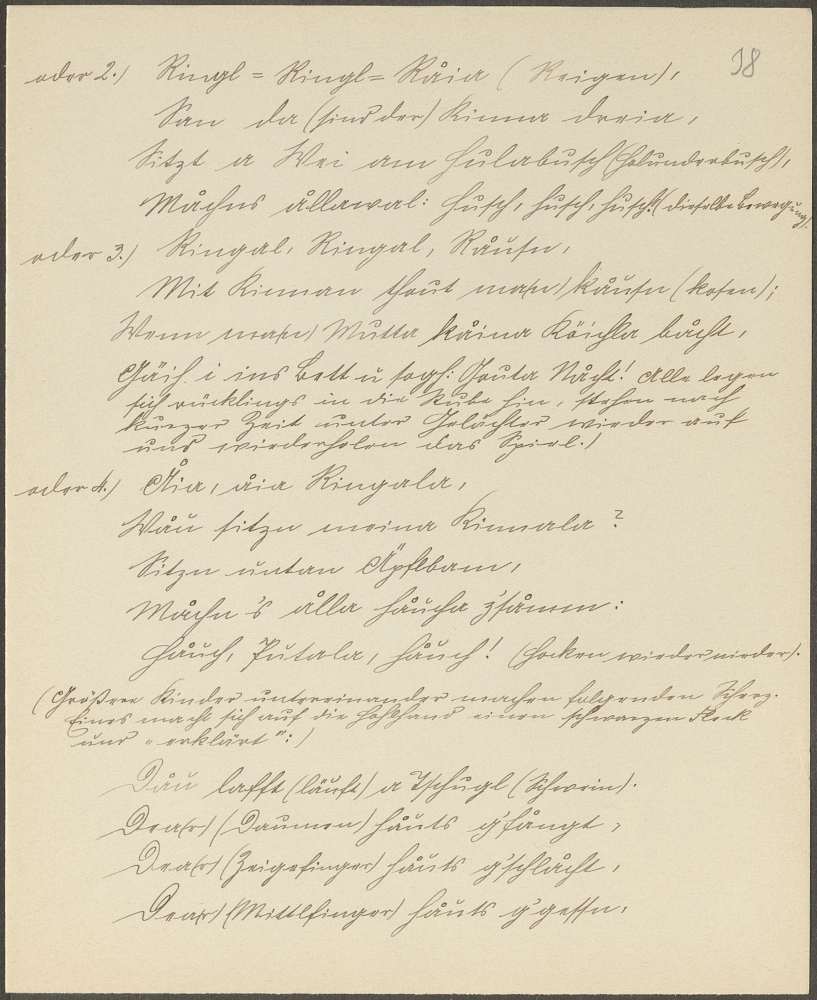 38
oder 2.) Ringl = Ringl = Råia (Reigen),
San da (sind der) Kinna dreia,
Sitzt a Wei am Hulabusch (Holunderbusch),
Måchns ållawal: Husch, husch, husch! (dieselbe Bewegung).
oder 3.) Ringal, Ringal, Råusn,
Mit Kinnan thout ma(n) kåusn (kosen);
Wenn ma(n) Mutta kåina Köichla båcht,
Gäih i ins Bett u sogh: Gouta Nåcht! Alle legen
sich rücklings in die Stube hin, stehen nach
kurzer Zeit unter Gelächter wieder auf
und wiederholen das Spiel.)
oder 4.) Åia, åia Ringala,
Wåu sitzn meina Kinnala?
Sitzn untan Äpflbam,
Måchn's ålla håucha z'såmm:
Håuch, Putala, håuch! (Hocken wieder nieder).
(Größere Kinder untereinander machen folgenden Scherz.
Eines macht sich auf die Hohlhand einen schwarzen Fleck
und "erklärt":)
Dåu lafft (läuft) a Tschugl (Schwein).
Dea(r) (Daumen) håuts g'fångt,
Dea(r) (Zeigefinger) håuts g'schlåcht,
Dea(r) (Mittlfinger) håuts g'gessn,